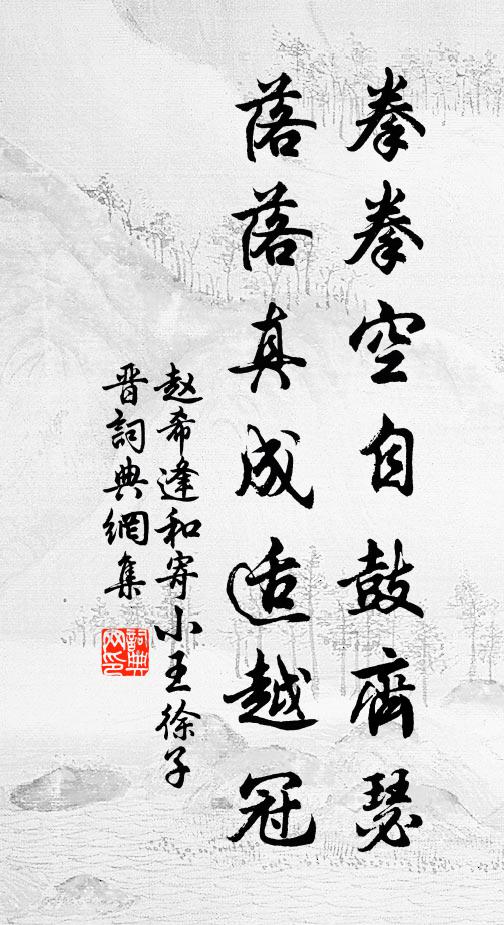 拳拳空自鼓齊瑟
落落真成适越冠
赵希逢和寄小王徐子
晋詞典網集
詞典网印